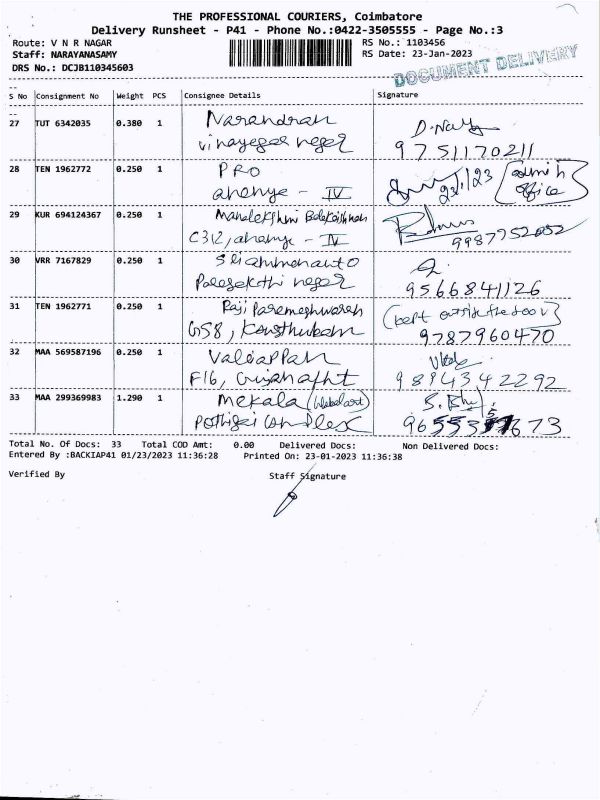 THE PROFESSIONAL COURIERS, Coimbatore
Delivery Runsheet - P41 - Phone No.:0422-3505555 - Page No.:3
Route: V N R NAGAR RS No.: 1103456
Staff: NARAYANASAMY RS Date: 23-Jan-2023
DRS No.: DCJB110345603
DOCUMENT DELIVERY
S No Consignment No Weight PCS Consignee Details Signature
27 TUT 6342035 0.380 1 Narandran
vinayagar nager 9751170211
28 TEN 1962772 0.250 1 PRO
ananye - IV 23/1/23 admin office
29 KUR 694124367 0.250 1 Mahalekshmi Balakrishnan
C312, ananye - IV 9987752052
30 VRR 7167829 0.250 1
nager 9566841126
31 TEN 1962771 0.250 1 Raji Parameshwaran
G58, Kousthubam 9787960470
32 MAA 569587196 0.250 1 Valliappan
F16, 9894342292
33 MAA 299369983 1.290 1 Mekala
Pothigai complex
Total No. Of Docs: 33 Total COD Amt: 0.00 Delivered Docs: Non Delivered Docs:
Entered By :BACKIAP41 01/23/2023 11:36:28 Printed On: 23-01-2023 11:36:38
Verified By Staff Signature